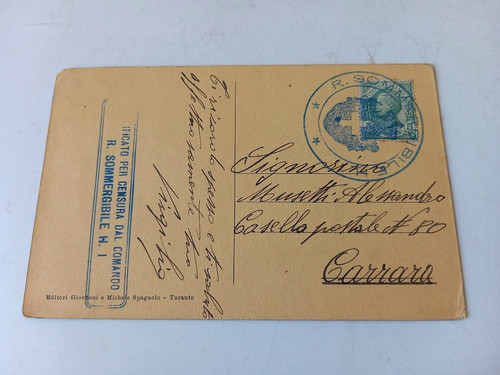 Ti ricordo spesso e ti saluto
affettuosamente tuo
Virgilio
IFICATO PER CENSURA DAL COMANDO
R. SOMMERGIBILE H. 1
R. SOMMERGIBILE
Signorino
Musetti Alessandro
Casella postale N 80
Carrara
Editori Giovanni e Michele Spagnolo - Taranto